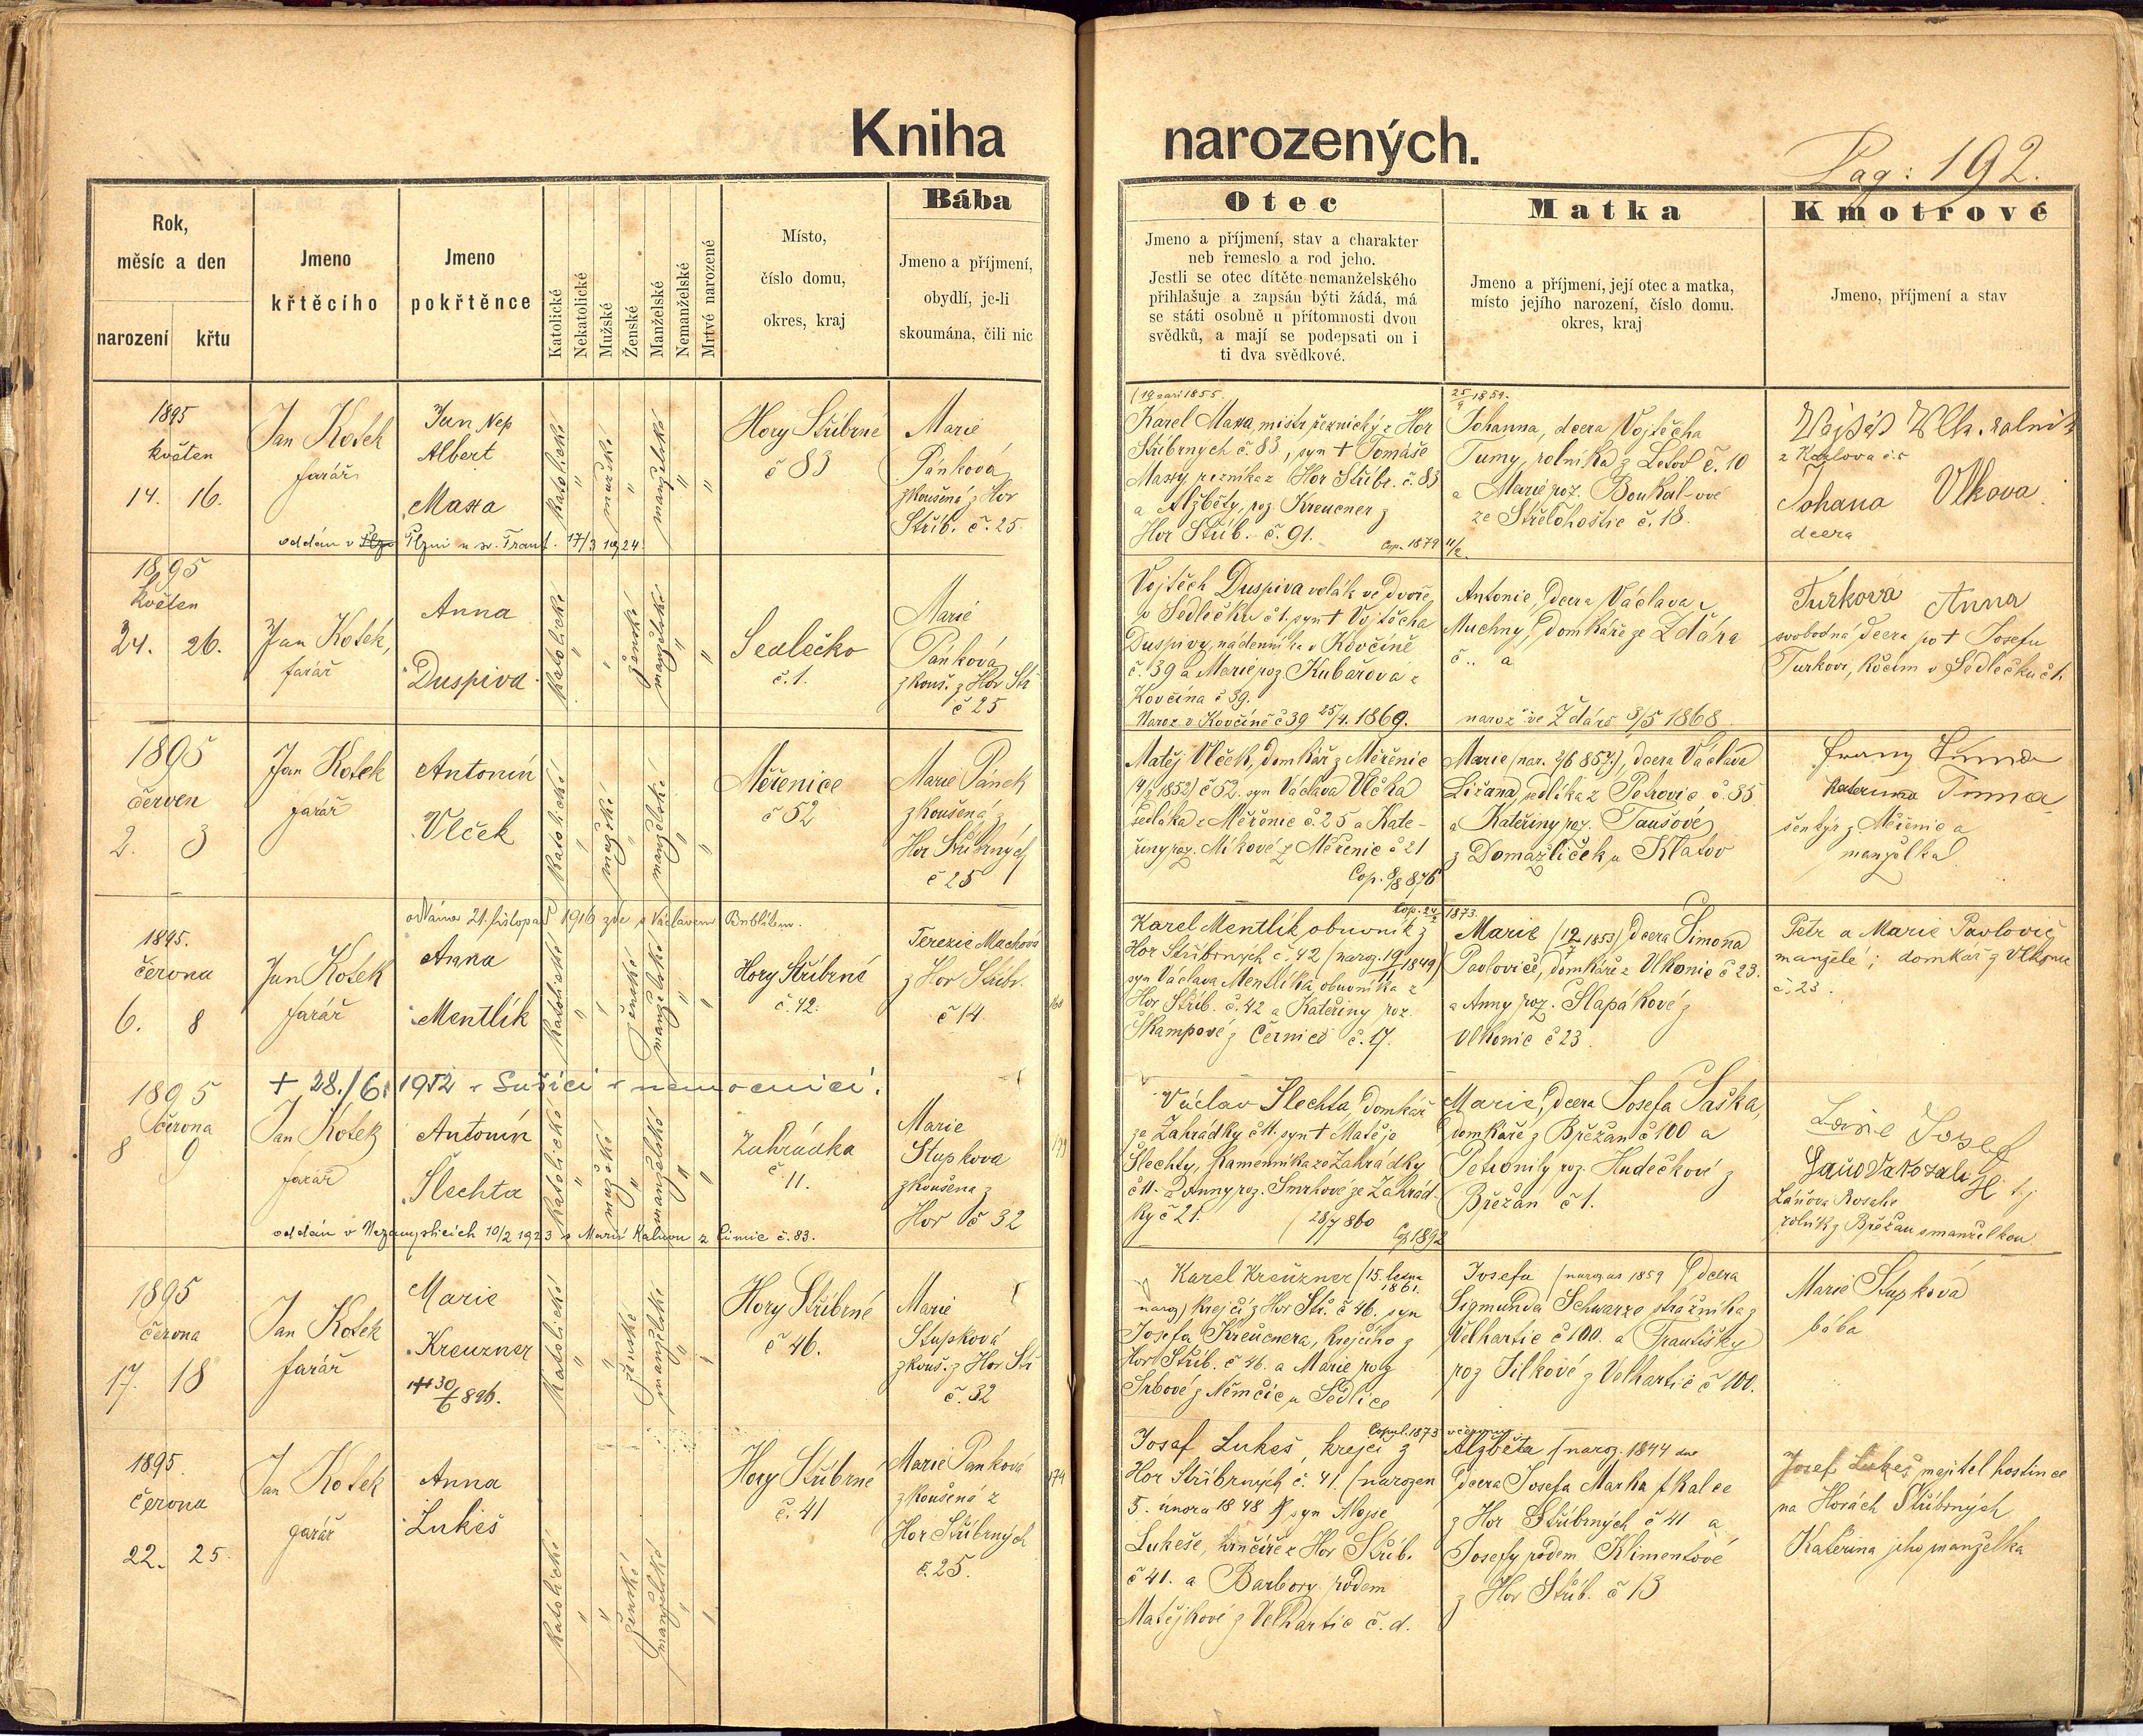 Kniha narozených.
Pag: 192.
Rok,
měsíc a den
narození
křtu
Jmeno
křtěcího
Jmeno
pokřtěnce
Katolické
Nekatolické
Mužské
Ženské
Manželské
Nemanželské
Mrtvé narozené
Místo,
číslo domu,
okres, kraj
Bába
Jmeno a příjmení,
obydlí, je-li
skoumána, čili nic
Otec
Jmeno a příjmení, stav a charakter
neb řemeslo a rod jeho.
Jestli se otec dítěte nemanželského
přihlašuje a zapsán býti žádá, má
se státi osobně u přítomnosti dvou
svědků, a mají se podepsati on i
ti dva svědkové.
Matka
Jmeno a příjmení, její otec a matka,
místo jejího narození, číslo domu.
okres, kraj
Kmotrové
Jmeno, příjmení a stav
1895
květen
14. 16.
Jan Kotek
farář
Jan Nep
Albert
Maxa
katolické
"
mužské
"
manželské
"
"
Hory Stříbrné
č 83
Marie
Pánková
zkoušená z Hor
Stříb. č. 25.
oddán v Plzni u sv. Frant. 17/3 1924
(19 září 1855.
Karel Maxa, mistr řeznický z Hor
Stříbrných č. 83, syn + Tomáše
Maxy, řezníka z Hor Stříbr. č. 83
a Alžběty, roz. Kreucner z
Hor Stříb. č. 91.
Cop. 1879 11/2.
25/9 1859.
Johanna, dcera Vojtěcha
Tumy, rolníka z Letov č. 10
a Marie roz. Boukal-ové
ze Střelohoštic č. 18.
Vlk. rolník
z Kozlova č. 5
Johana Vlkova
dcera
1895
květen
24. 26.
Jan Kotek,
farář
Anna
Duspiva
katolické
"
"
ženské
manželské
"
"
Sedlečko
č. 1.
Marie
Pánková
zkouš. z Hor Stř
č 25
Vojtěch Duspiva volák ve dvoře
v Sedlečku č 1. syn + Vojtěcha
Duspivy, nádenníka v Kovčíně
č. 39 a Marie roz Kubařová z
Kovčína č 39.
Naroz. v Kovčíně č 39 25/4. 1869.
Antonie, dcera Václava
Muchny, domkáře ze Ždára
č.. a
naroz ve Ždáre 3/5 1868.
Turková Anna
svobodná, dcera po + Josefu
Turkovi, kočím v Sedlečku č 1.
1895
červen
2. 3
Jan Kotek
farář
Antonín
Vlček
katolické
"
mužské
"
manželské
"
"
Měřenice
č 52
Marie Pánek
zkoušená z
Hor Stříbrných
č 25
Matěj Vlček, domkář z Měřenic
1852) č 52. syn Václava Vlčka
sedláka z Měřenic č. 25 a Kate-
řiny roz. Míkové z Měřenic č 21
Cop. 8/8 876
Marie (nar. 2/6 857.), dcera Václava
sedláka z Petrovic č. 85
a Kateřiny roz. Taušové
z Domažliček u Klatov
Franz Tuma
Kateřina Tuma
šenkýř z Měřenic a
manželka
oddána 21. listopad 1916 zde s Václavem
1895.
června
6. 8
Jan Kotek
farář
Anna
Mentlík
katolické
"
"
ženské
manželské
"
"
Hory Stříbrné
č. 42.
Terezie Machová
z Hor Stříbr.
č 14.
Cop. 24/2 1873.
Karel Mentlík, obuvník z
Hor Stříbrných č. 42 (naroz. 19/11 1849)
syn Václava Mentlíka obuvníka z
Hor Stříb. č. 42 a Kateřiny roz.
Škampové z Černic č. 17.
Marie (12/7 1853) dcera Šimona
Pavloviče, domkáře z Vlkonic č 23.
a Anny roz. Šlapákové z
Vlkonic č 23
Petr a Marie Pavlovič
manželé; domkář z Vlkonic
č. 23.
+ 28./6. 1952 v Sušici v nemocnici.
1895
června
8 9
Jan Kotek
farář
Antonín
Šlechta
katolické
"
mužské
"
manželské
"
"
Zahrádka
č. 11.
Marie
Stupkova
zkoušena z
Hor č 32
oddán v Nezamyslicích 10/2 1923 s Marií Kalnou z č. 83.
Václav Šlechta, domkář
ze Zahrádky č 11. syn + Matěje
Šlechty, kamenníka ze Zahrádky
č 11. a Anny roz. Smrhové ze Zahrád-
ky č 21.
(28/7 860
Cop 1892
Marie, dcera Josefa Šaška,
domkáře z Břežan č 100 a
Petronily roz. Hudečkové z
Břežan č 1.
Josef
Láňova Rosalie
rolník z Břežan s manželkou
1895
června
17. 18
Jan Kotek
farář
Marie
Kreuzner
+ 30/6 896.
katolické
"
"
ženské
manželské
"
"
Hory Stříbrné
č 46.
Marie
Stupková
zkouš. z Hor Stř
č. 32
Karel Kreuzner (15. ledna
1861.
naroz) krejčí z Hor Stř. č 46. syn
Josefa Kreucnera, krejčího z
Hor Stříb. č 46. a Marie roz
Srbové z Němčic u Sedlice
Josefa (naroz as 1859) dcera
Sigmunda Schwarze strážníka z
Velhartic č 100. a Františky
roz Jílkové z Velhartic č 100.
Marie Stupková
bába
1895.
června
22. 25.
Jan Kotek
farář
Anna
Lukeš
katolické
"
"
ženské
manželské
"
"
Hory Stříbrné
č. 41
Marie Pánková
zkoušená z
Hor Stříbrných
č. 25.
Copul. 1873
Josef Lukeš, krejčí z
Hor Stříbrných č. 41. (narozen
5. února 1848) syn Alojse
Lukeše, hrnčíře z Hor Stříb.
č 41. a Barbory rodem
Matějkové z Velhartic č. d.
Alžběta (naroz. 1844
dcera Josefa Marka
z Hor Stříbrných č 41 a
Josefy rodem Klimentové
z Hor Stříb. č 13
Josef Lukeš, majitel hostince
na Horách Stříbrných
Kateřina jeho manželka